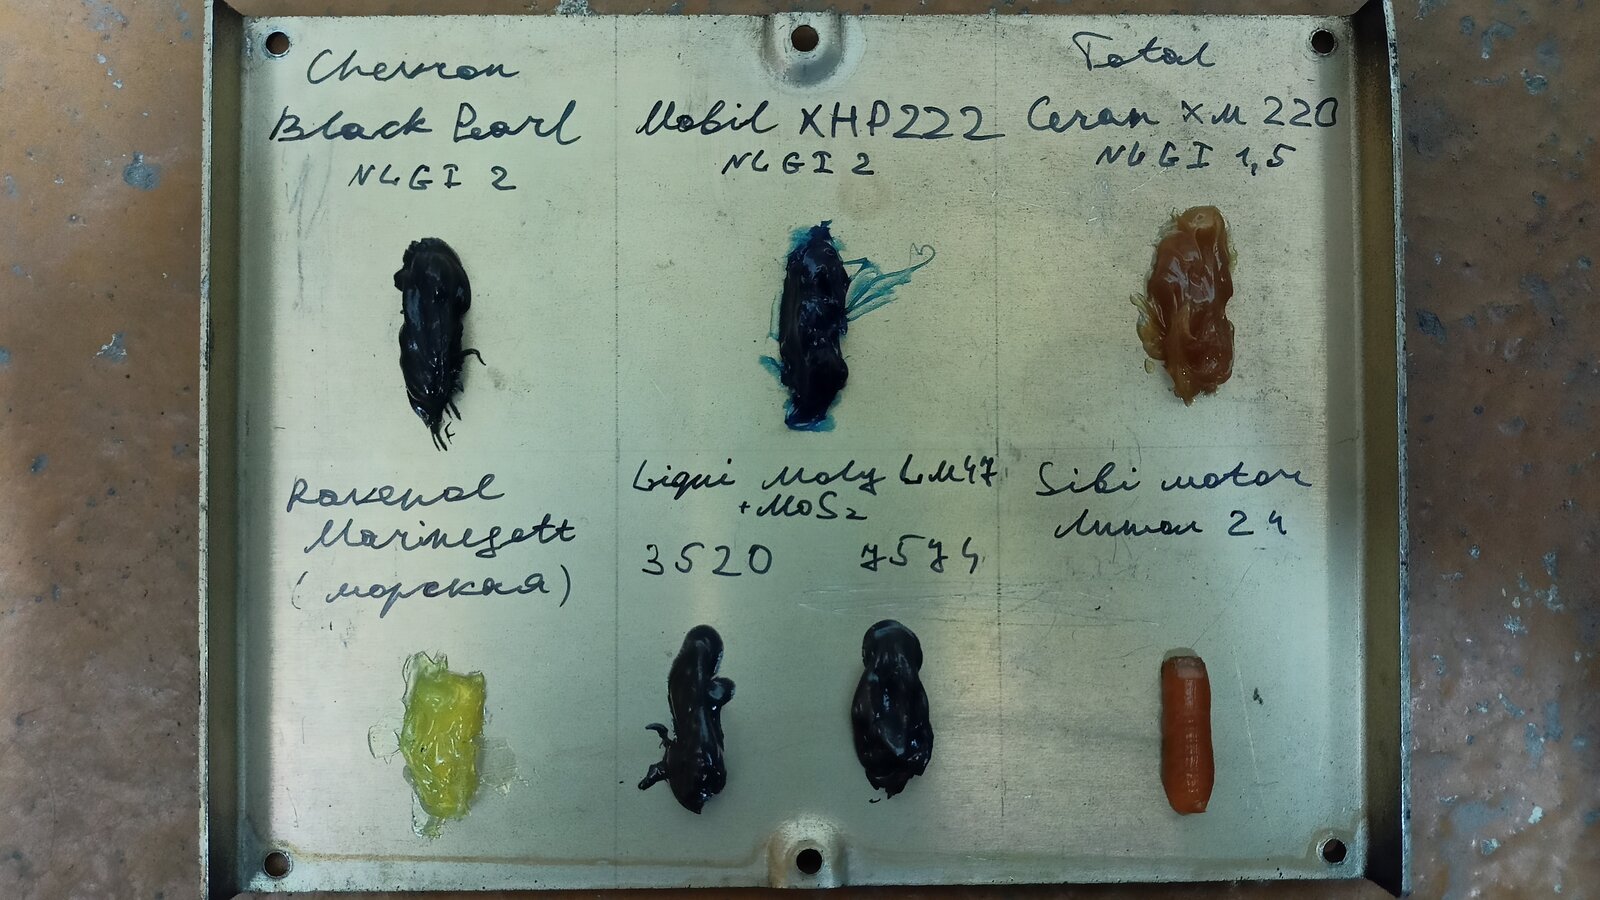 Chevron
Black Pearl
NLGI 2
Mobil XHP222
NLGI 2
Total
Ceran XM 220
NLGI 1,5
Ravenol
Marinefett
(морская)
Liqui Moly LM47
+MoS2
3520 7574
Sibi motor
Литол 24